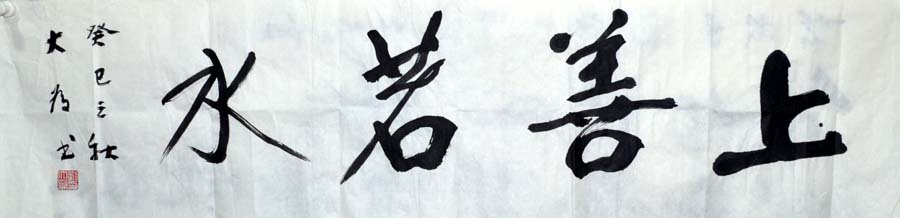 上善若水
癸巳之秋
大为书